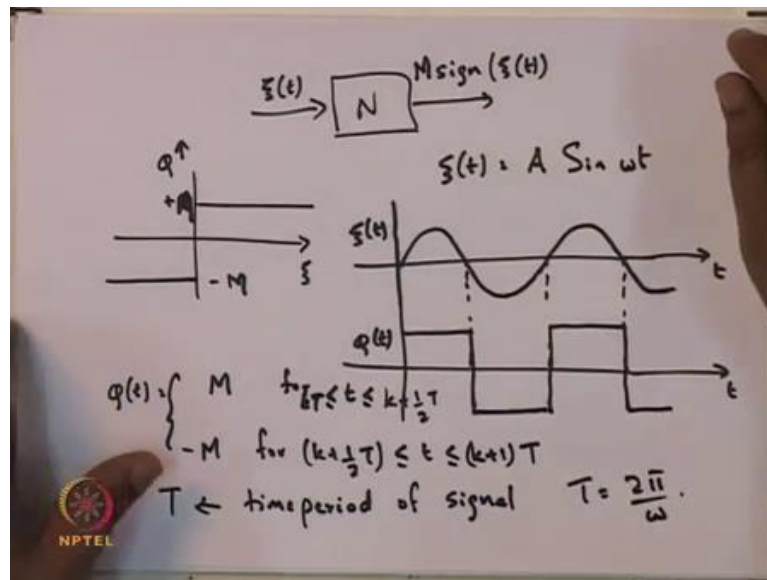 ξ(t) N M sign (ξ(t)
ξ(t) = A Sin ωt
Q
+M
ξ
-M
ξ(t)
t
Q(t)
t
Q(t) = { M for kT ≤ t ≤ k+½T
-M for (k+½T) ≤ t ≤ (k+1)T
T ← time period of signal T = 2π/ω.
NPTEL